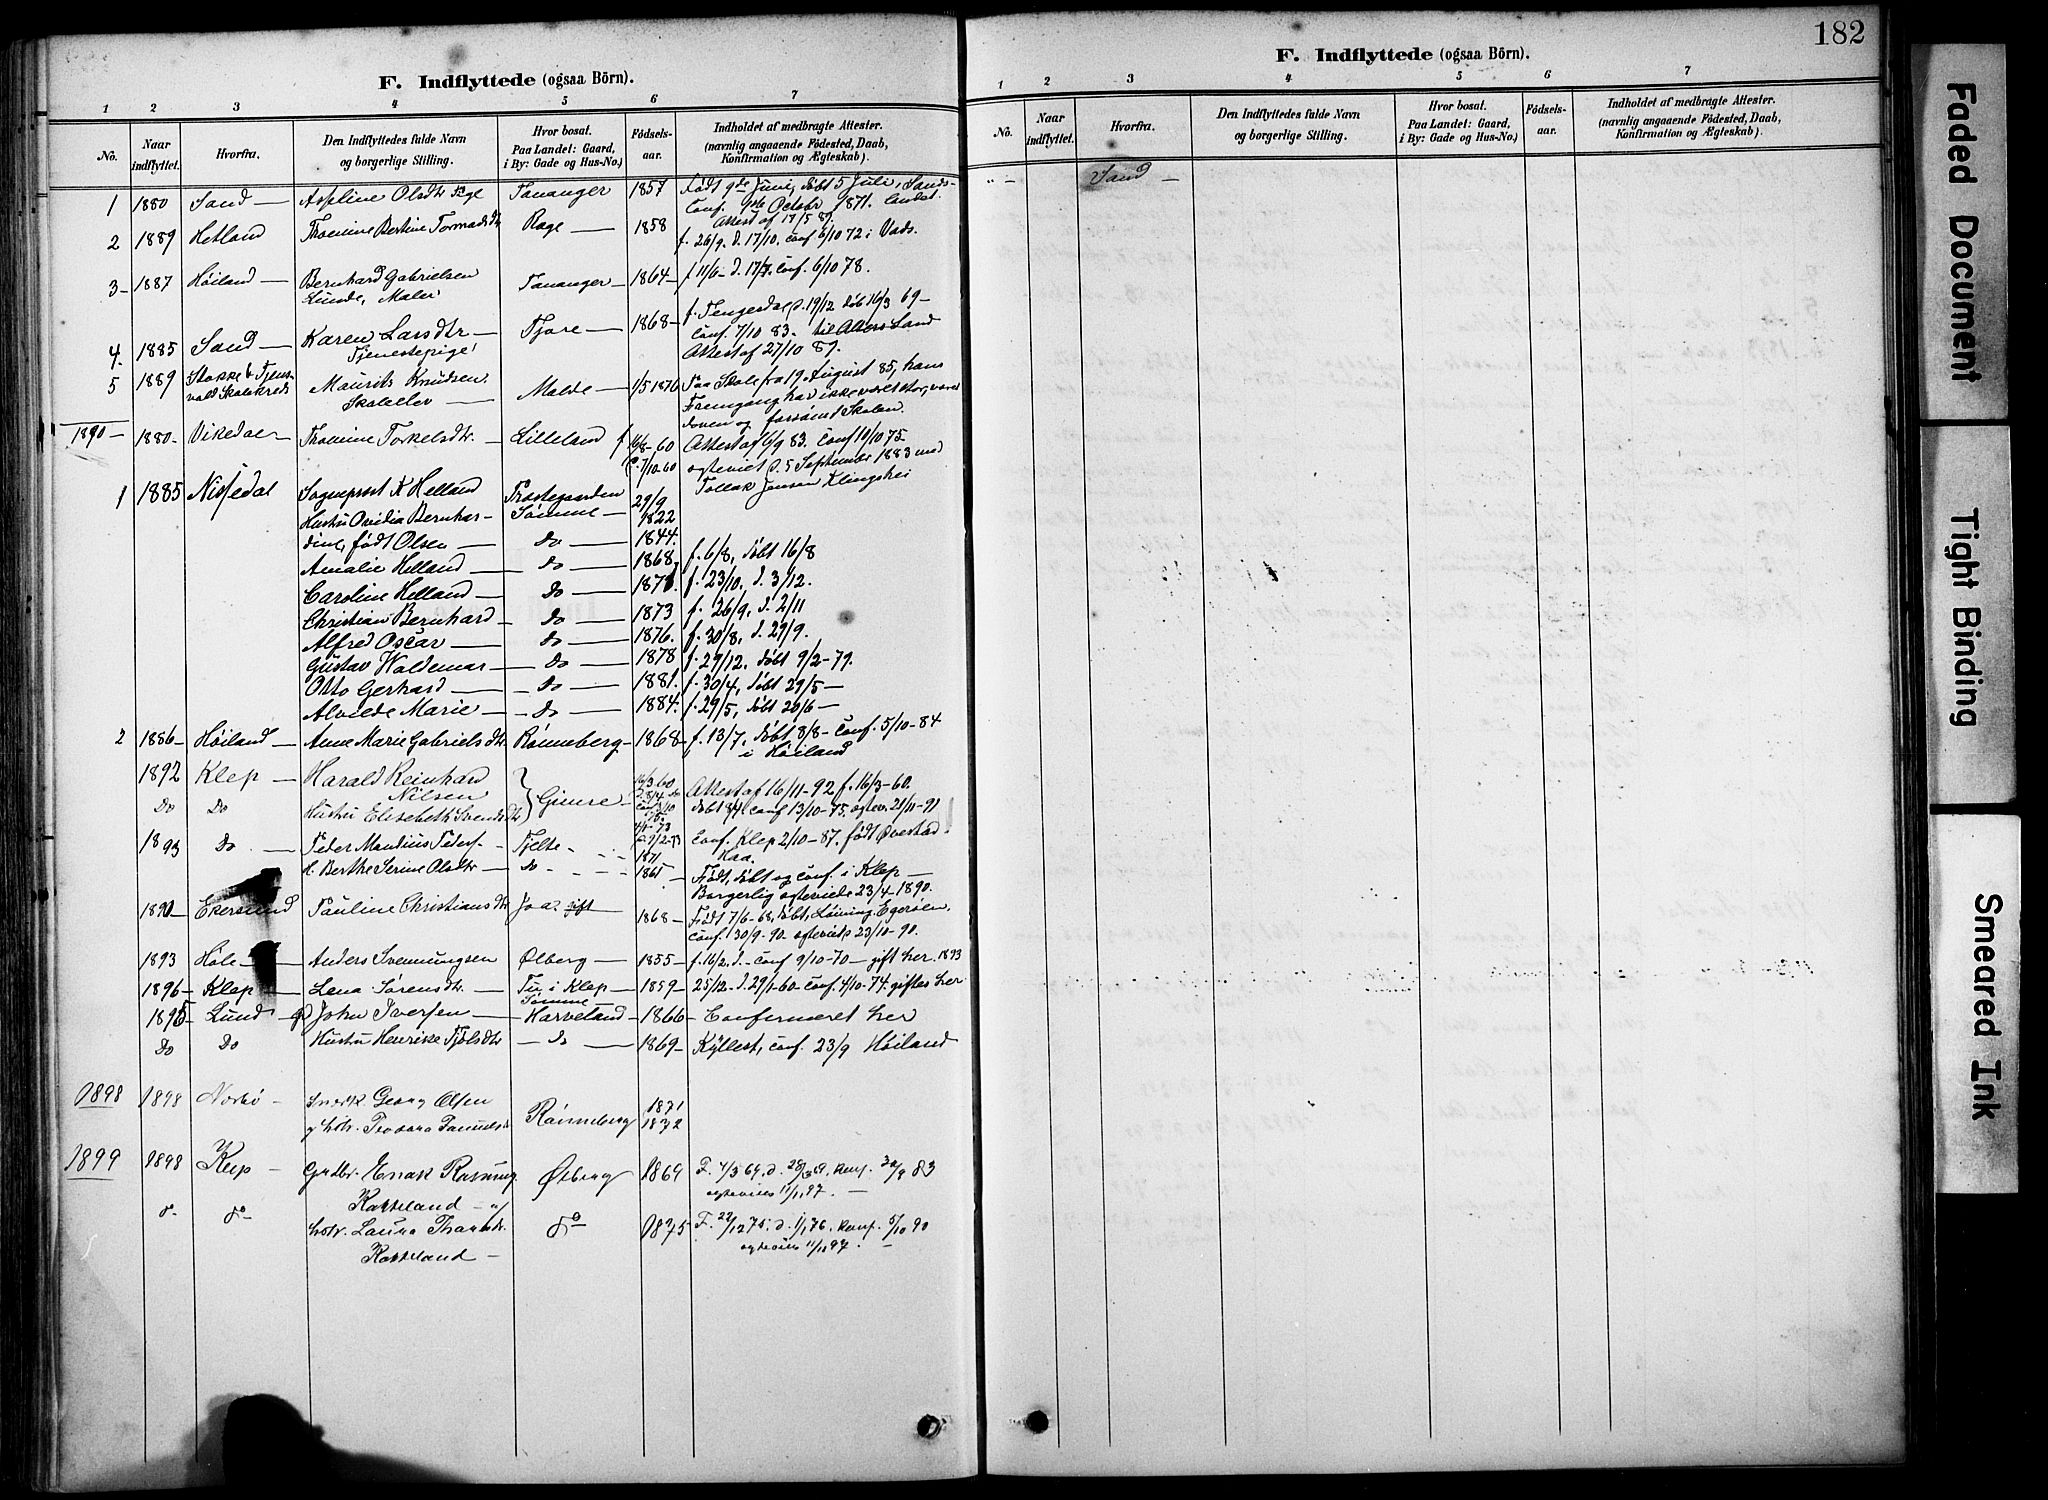 F. Indflyttede (ogsaa Börn).
1 2 3 4 5 6 7
No. Naar indflyttet. Hvorfra. Den Indflyttedes fulde Navn og borgerlige Stilling. Hvor bosat. Paa Landet: Gaard, i By: Gade og Hus-No.) Fødsels-aar. Indholdet af medbragte Attester. (navnlig angaaende Fødested, Daab, Konfirmation og Ægteskab).
1 1880 Sand — Olsdtr Tananger 1857 Født 9de Juni, døbt 5 Juli, Sands-
Conf. Octobr 1871.
Attest af 17/5 89.
2 1889 Hetland Thomine Bertine Tormodsdtr Rage — 1858 f. 26/9. d. 17/10. conf 6/10 72 i Vads.
3 - 1887 Høiland — Bernhard Gabrielsen Tananger — 1864 — f 11/6 - d. 17/7. Conf. 6/10 78.
Lunde, Maler
4. 1885 Sand — Karen Larsdtr — Tjore — 1868 — f. Tengesdal d. 19/12 døb 16/3 69 —
Tjenestepige Conf. 7/10 83. til Alters Sand
Attest af 27/10 89.
5 1889 Stokke Maurits Knudsen Malde — 1/5 1876 Paa Skole fra 19. August 85, hans
Skoleelev — Fremgang har ikke været stor, været
doven og forsømt Skolen.
1890 — 1880 - Vikedal — Thomine Torkelsdtr. — Lilleland f. 16/8 - 60 Attest af 6/9 83. Conf 10/10 75
d. 7/10 60 egteviet d. 5 September 1883 med
Tollak Jensen Klingshei
1 1885 Nissedal Sogneprest K Helland Præstegaarden 29/9
Hustru Ovidia Bernhar- Sømme — 1822
dine, født Olsen — Do — 1844.
Amalie Helland — Do — 1868 f. 6/8, døbt 16/8
Caroline Helland — Do — 1871. f. 23/10, d. 3/12.
Christian Bernhard — Do — 1873 f. 26/9, d. 2/11
Alfred Oscar — Do — 1876. f. 30/8, d. 29/9.
Gustav Waldemar — Do — 1878 f. 29/12. døbt 9/2 - 79.
Otto Gerhard — Do — 1881. f. 30/4, døbt 29/5 —
Alvilde Marie — Do — 1884. f. 29/5, døbt 20/6 —
2 1886 — Høiland — Anne Marie Gabrielsdtr Rønneberg — 1868 — f. 13/7, døbt 8/8 - Conf. 5/10 - 84
i Høiland
1892 Klep — Harald Reinhard Nilsen Gimre — 16/3 60 Attest af 16/11 - 92 f. 16/3 - 60.
Do Do Hustru Elisebeth Svendsdtr døbt 8/4. conf 13/10 - 75. egtev. 21/11 - 91
1893 Do — Peder Mandius Peders. - Fjelte - 1871 Conf. Klep 2/10 - 87. født
Haa.
H. Berthe Serine Olsdtr — Do - 1865 — Født, døbt og conf. i Klep —
Borgerlig egteviede 23/4 - 1890.
1890 — Ekersund Pauline Christiansdtr Joa. gift 1868 — Født 7/6 - 68, døbt, Egerøen,
conf. 30/9 - 90 - egteviede 23/10 - 90.
1893 Høle — Anders Svennungsen Ølberg — 1855 — f. 16/2. d. - conf 9/10 - 70 — gift her. 1893
1896 — Klep — Lena Sørensdtr. — Tu i Klep — 1859 — 25/12 - d. 29/1 - 60 - conf. 4/10 - 74. giftes her
Sømme —
1895 — Lund John Iversen — Harveland — 1866 — Confirmeret her
Do Do Hustru Henrike Fjølsdtr — Do — 1869 — Kyllest, conf. 23/9 Høiland
1898 1898 Norbø - Snedk. Georg Olsen Rønneberg 1871
1872
1899 1898 Klep — Grdbr. Enok Rasmus. Ølberg 1869 F. 4/3 69. d. 28/3 69. Konf. 30/9 83
Kaasland — egteviet 11/11 97. —
do do hstr. Laura do 1875 F. 22/12 75. d. 1/1 76, Konf. 5/10 90
Kaasland — egteviet 11/11 97. —
182
F. Indflyttede (ogsaa Börn).
1 2 3 4 5 6 7
No. Naar indflyttet. Hvorfra. Den Indflyttedes fulde Navn og borgerlige Stilling. Hvor bosat. Paa Landet: Gaard, i By: Gade og Hus-No.) Fødsels-aar. Indholdet af medbragte Attester. (navnlig angaaende Fødested, Daab, Konfirmation og Ægteskab).
Sand —
Faded Document
Tight Binding
Smeared Ink